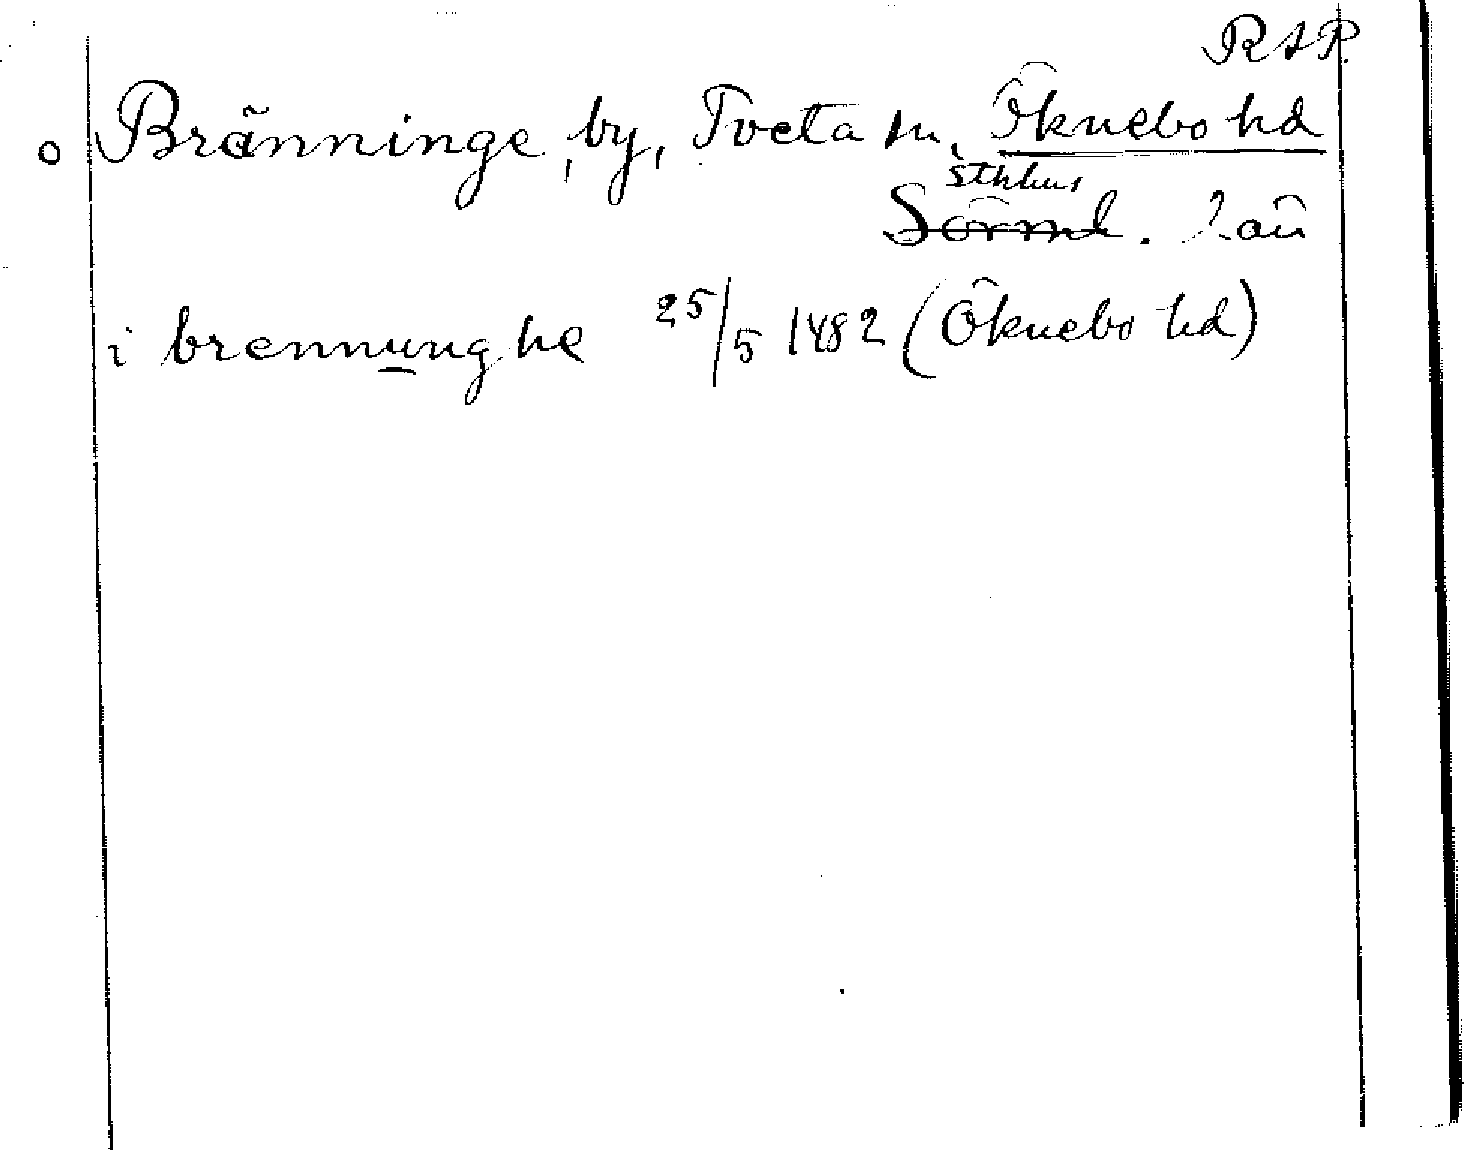 RAP.
o Bränninge, by, Tveta sn, Öknebo hd
sthlms
Sörml. län
i brennunghe 25/5 1482 (Öknebo hd)